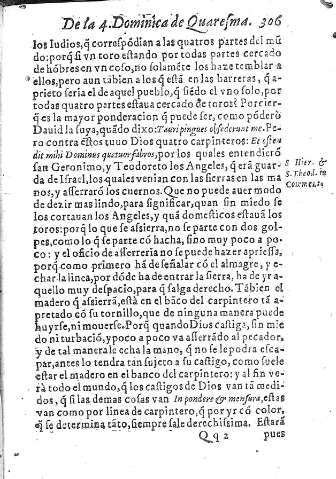 De la 4. Dominica de Quaresma. 306
los Iudios, q̃ correspõdian a las quatro partes del mũ
do: porq̃ si vn toro estando por todas partes cercado
de hõbres en vn coso, no solamẽte los haze temblar a
ellos, pero aun tãbien a los q̃ està en las barreras, q̃ a-
prieto seria el de aquel pueblo, q̃ siẽdo el vno solo, por
todas quatro partes estaua cercado de toros? Por cier-
q̃ es la mayor ponderacion q̃ puede ser, como põderò
Dauid la suya, quãdo dixo: Tauri pingues obsederunt me. Pe-
ro contra estos tuuo Dios quatro carpinteros: Et osten
dit mihi Dominus quatuor fabros, por los quales entendierõ
san Geronimo, y Teodoreto los Angeles, q̃ erã guar
da de Israel, los quales venian con las sierras en las ma
nos, y asserrarõ los cuernos. Que no puede auer modo
de dezir mas lindo, para significar, quan sin miedo se
los cortauan los Angeles, y quã domesticos estauã los
toros: porq̃ lo que se assierra, no se parte con dos gol-
pes, como lo q̃ se parte cõ hacha, sino muy poco a po-
co: y el oficio de asserreria no se puede hazer apriessa,
porq̃ como primero hã de señalar cõ el almagre, y e-
char la linea, por dõde ha de entrar la sierra, ha de yr a-
quello muy despacio, para q̃ salga derecho. Tãbien el
madero q̃ assierrã, està en el bãco del carpintero tã a-
pretado cõ su tornillo, que de ninguna manera puede
huyrse, ni mouerse. Porq̃ quando Dios castiga, sin mie
do ni turbaciõ, y poco a poco va asserrãdo al pecador,
y de tal manera le echa la mano, q̃ no se le podra esca-
par, antes lo tendra tan sujeto a su castigo, como suele
estar el madero en el banco del carpintero: y al fin ve-
rà todo el mundo, q̃ los castigos de Dios van tã medi-
dos, q̃ si las demas cosas van In pondere & mensura, estas
van como por linea de carpintero, q̃ por yr cõ color,
q̃ se determina tãto, siempre sale derechissima. Estarà
Qq 2 pues
S Hier. &
S. Theod. in
Comment.